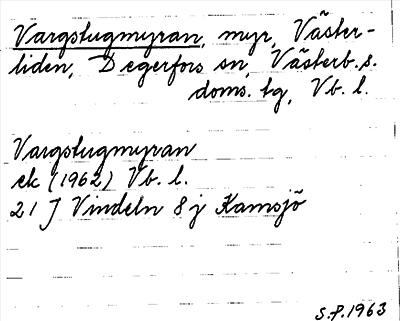 Vargstugmyran, myr, Väster-
liden, Degerfors sn, Västerb. s.
doms. tg, Vb. l.
Vargstugmyran
ek (1962) Vb. l.
21 J Vindeln 8 j Kamsjö
S.P. 1963